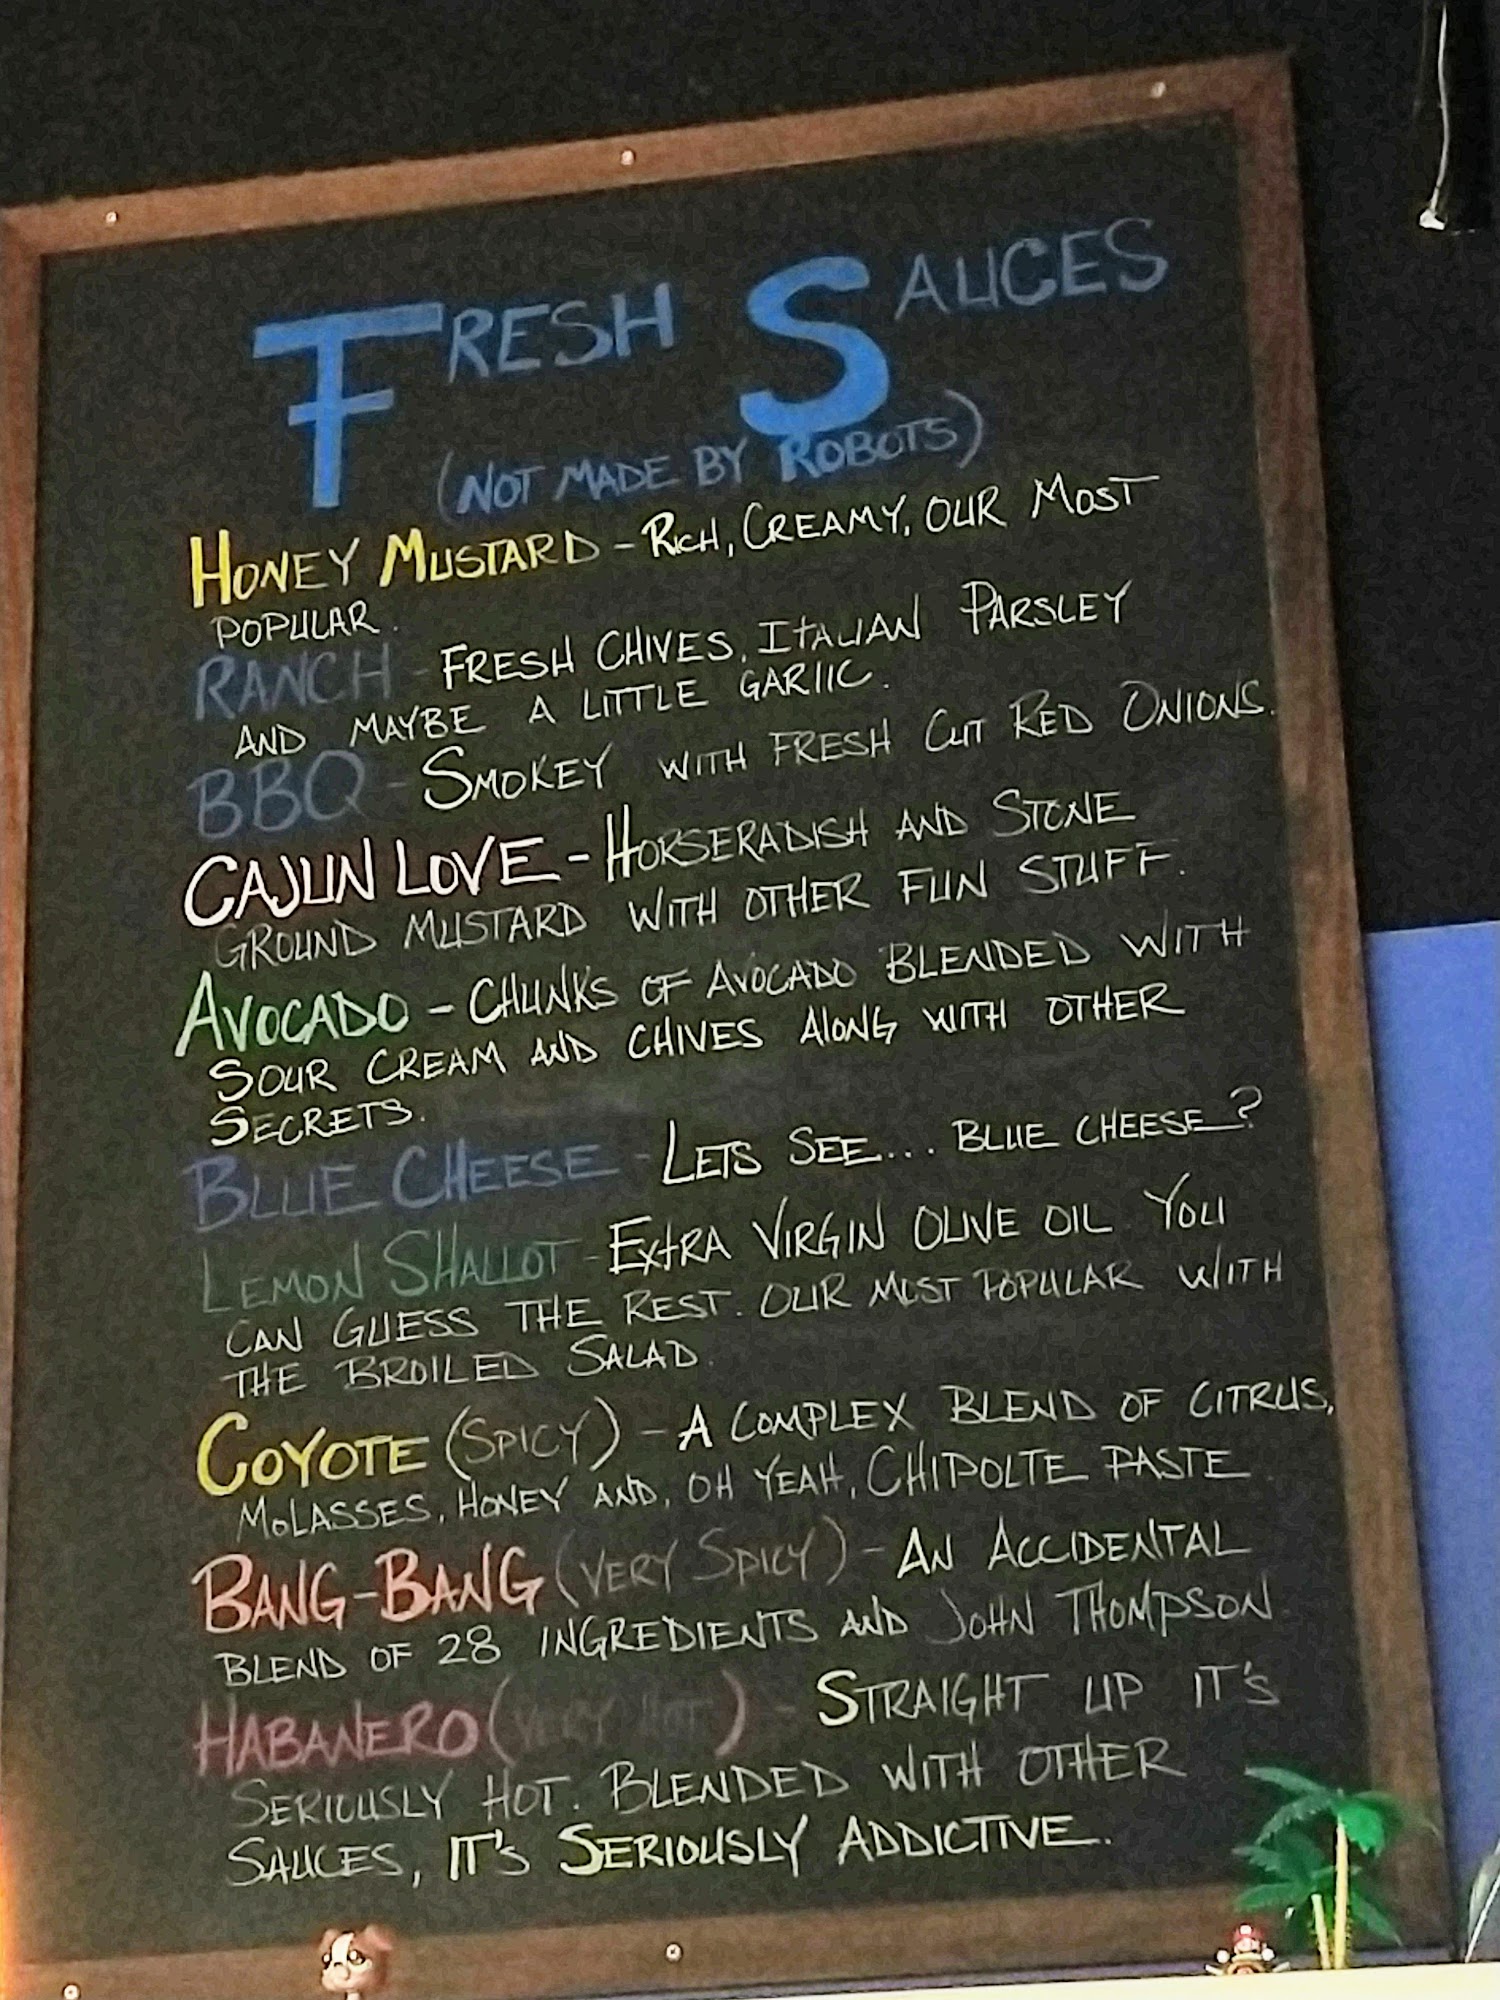 FRESH SAUCES
(NOT MADE BY ROBOTS)
HONEY MUSTARD - RICH, CREAMY, OUR MOST
POPULAR.
RANCH - FRESH CHIVES, ITALIAN PARSLEY
AND MAYBE A LITTLE GARLIC.
BBQ - SMOKEY WITH FRESH CUT RED ONIONS.
CAJUN LOVE - HORSERADISH AND STONE
GROUND MUSTARD WITH OTHER FUN STUFF.
AVOCADO - CHUNKS OF AVOCADO BLENDED WITH
SOUR CREAM AND CHIVES ALONG WITH OTHER
SECRETS.
BLUE CHEESE - LETS SEE... BLUE CHEESE?
LEMON SHALLOT - EXTRA VIRGIN OLIVE OIL. YOU
CAN GUESS THE REST. OUR MOST POPULAR WITH
THE BROILED SALAD.
COYOTE (SPICY) - A COMPLEX BLEND OF CITRUS,
MOLASSES, HONEY AND, OH YEAH, CHIPOLTE PASTE.
BANG-BANG (VERY SPICY) - AN ACCIDENTAL
BLEND OF 28 INGREDIENTS AND JOHN THOMPSON.
HABANERO (VERY HOT) - STRAIGHT UP IT'S
SERIOUSLY HOT. BLENDED WITH OTHER
SAUCES, IT'S SERIOUSLY ADDICTIVE.